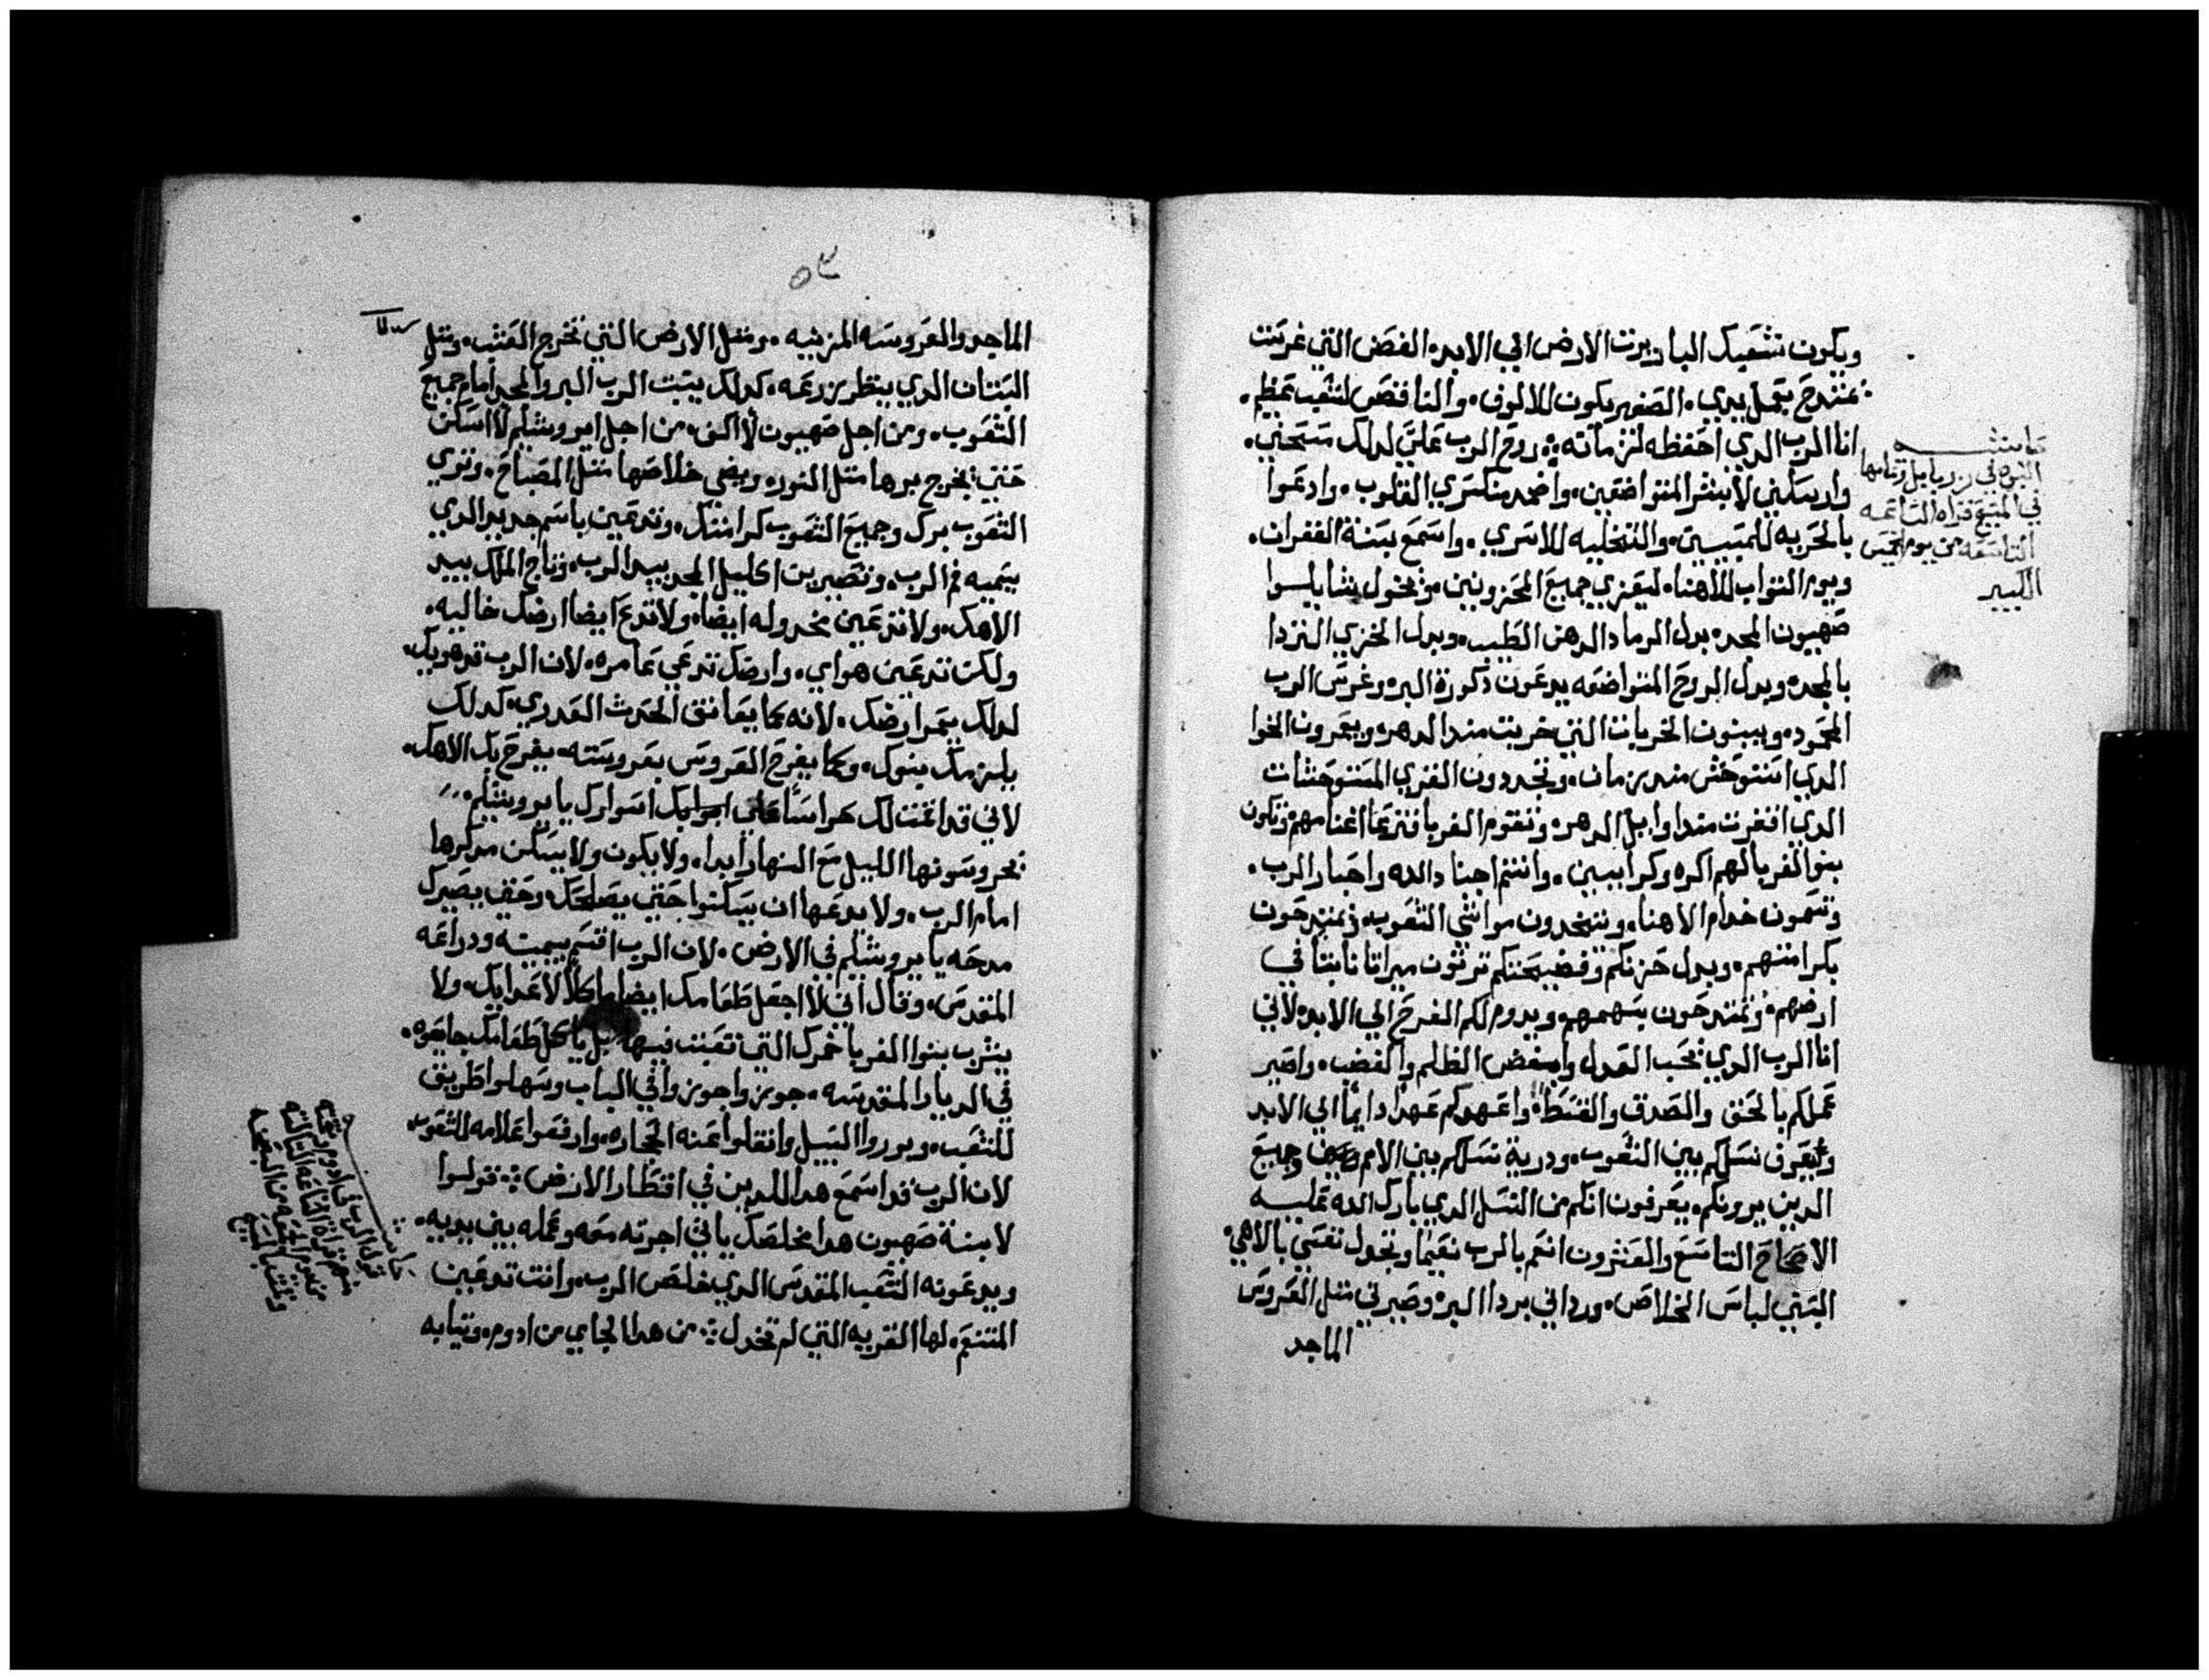 ويكون شعبك البار يرث الارض الي الابد. الغصن التي غرست
يمتدح بعمل يدي. الصغير يكون للالوف. والناقص لشعب عظيم.
انا الرب الدي احفظه لزمانه ⁘ روح الرب علي لدلك مسحني.
وارسلني لأبشر المتواضعين. واضمد منكسري القلوب. وادعوا
بالحريه للمسبيين. والتخليه للاسري. واسمع بسنة الغفران.
ويوم التواب لالاهنا. ليعزي جميع المحزونين. وتحول
صهيون المجد. بدل الرماد الدهن الطيب. وبدل الخزي الردا
بالمجد. وبدل الروح المتواضعه يدعون ذكورة البر. وغرس الرب
الممجود. ويبنون الخربات التي خربت مند الدهر. ويعمرون الخوا
الدي استوحش مند زمان. وتجددون القري المستوحشات
الدي اقفرت مندا وايل الدهر. وتقوم الغربا فترعا اغنامهم وتكون
بنو الغربا لهم اكره وكرامين. وانتم اجناد الله واحبار الرب.
وتسمون خدام الاهنا. وتتخدون مواشي الشعوب. وتمتدحون
بكرامتهم. وبدل حزنكم وفضيحتكم ترثون ميراثا ثابتا في
ارضهم. وتمتدحون بسهمهم. ويدوم لكم الفرح الي الابد. لأني
انا الرب الدي نحب العدل وابغض الظلم والغضب. واصير
عملكم بالحق والصدق والقسط. واعهدكم عهدا دايما الي الابد
ويعرف نسلكم بين الشعوب. ودرية نسلكم بين الامم وجميع
الدين يرونكم. يعرفون انكم من النسل الدي بارك الله عليه
الاصحاح التاسع والعشرون انعم بالرب نعيما وتجدل نفسي بالاهي.
البسني لباس الخلاص. ورداني بردا البر. وصيرني متل العروس
الماجد
حاشيه
النبوه في
في المسيح قراة الساعه
التاسعه من يوم الخميس
الكبير
٥٣
الماجد والعروسه المزينه. ومتل الارض التي تخرج العشب. ومتل
البستان الدي ينظر زرعه. كدلك ينبت الرب البر والمجد امام جميع
الشعوب. ومن اجل صهيون لأ اكف. من اجل ايروشليم لأ اسكن
حتي يخرج برها متل النور. ويضي خلاصها متل المصباح. وتري
الشعوب برك وجميع الشعوب كرامتك. وتدعين باسم جديد الدي
يسميه فم الرب. وتصيرين اكليل المجد بيد الرب. وتاج الملك بيد
الاهك. ولا تدعين مخدوله ايضا. ولا تدع ايضا ارضك خاليه.
ولكن تدعين هواي. وارضك تدعي عامره. لان الرب قد هويك.
لدلك يعمر ارضك. لأنه كما يعانق الحدث العدري. كدلك
يلزمك بنوك. وكما يفرح العروس بعروسته. يفرح بك الاهك.
لاني قد اقمت لك حراسا علي اسوارك يا يروشليم.
يحروسونها الليل مع النهار ابدا. ولا يكون ولا يسكن مدكرها
امام الرب. ولا يدعها ان يسكنوا حتي يصلحك. وحتي يصيرك
مدحه يا يروشليم في الارض. لان الرب اقسم بيمينه ودراعه
المقدس. وقال اني لأ اجعل طعامك ايضا ماكلا لأعدايك. ولا
يشرب بنوا الغربا خمرك التي تعبت فيها بل ياكل طعامك جامعوه.
في الديار المقدسه. جوزوا جوزوا في الباب وسهلوا طريق
للشعب. ودوروا السبيل وانقلوا عنه الحجاره. وارفعوا علامه للشعوب.
لان الرب قد اسمع هدا للدين في اقطار الارض ⁘ قولوا
لابنة صهيون هدا مخلصك ياتي اجرته معه وعمله بين يديه.
ويدعونه الشعب المقدس الدي خلص الرب. وانت تدعين
المتنعم. لها القريه التي لم تخدل ⁘ من هدا الجاي من ادوم. وتيابه
حاشيه